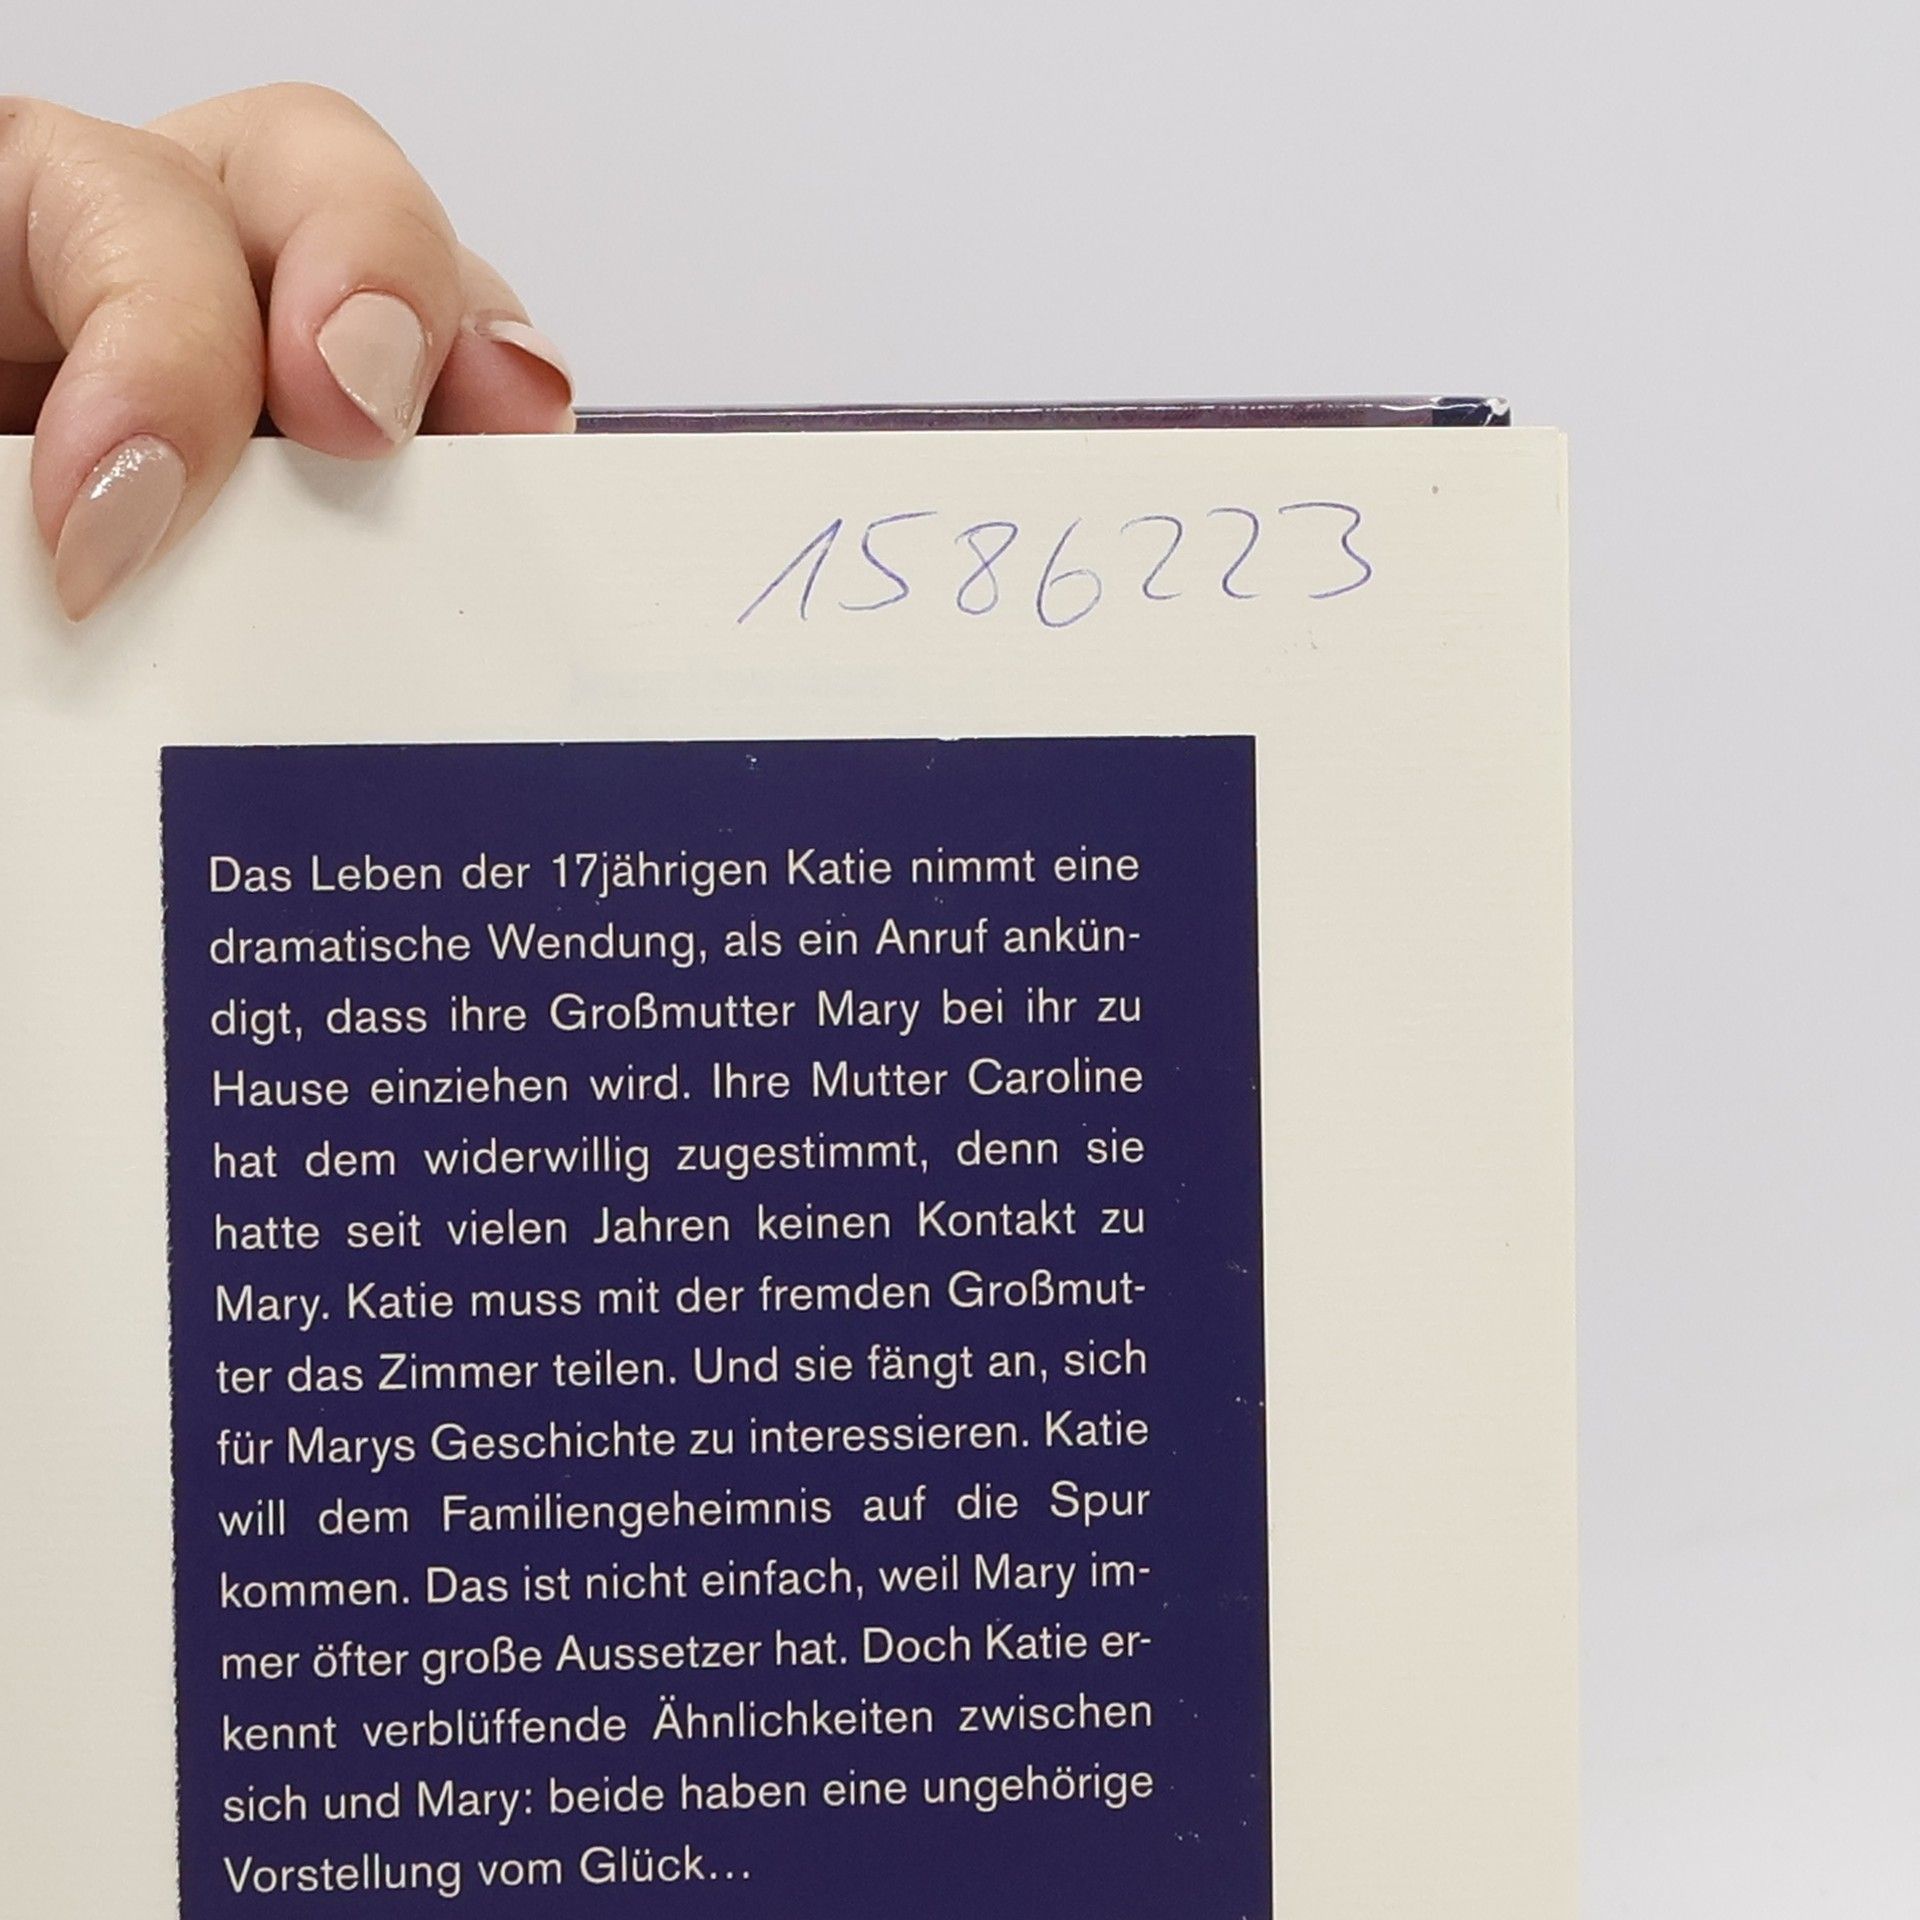 1586223
Das Leben der 17jährigen Katie nimmt eine
dramatische Wendung, als ein Anruf ankün-
digt, dass ihre Großmutter Mary bei ihr zu
Hause einziehen wird. Ihre Mutter Caroline
hat dem widerwillig zugestimmt, denn sie
hatte seit vielen Jahren keinen Kontakt zu
Mary. Katie muss mit der fremden Großmut-
ter das Zimmer teilen. Und sie fängt an, sich
für Marys Geschichte zu interessieren. Katie
will dem Familiengeheimnis auf die Spur
kommen. Das ist nicht einfach, weil Mary im-
mer öfter große Aussetzer hat. Doch Katie er-
kennt verblüffende Ähnlichkeiten zwischen
sich und Mary: beide haben eine ungehörige
Vorstellung vom Glück...